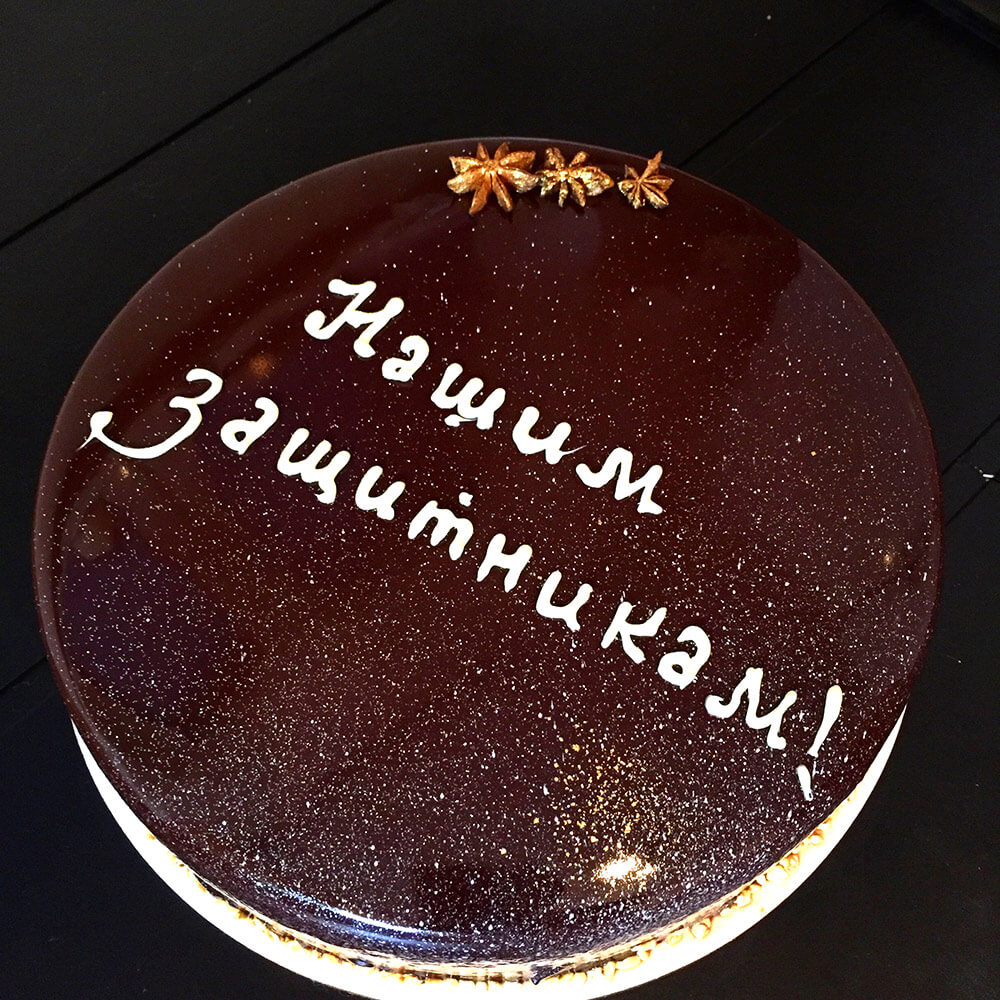 Нашим
Защитникам!